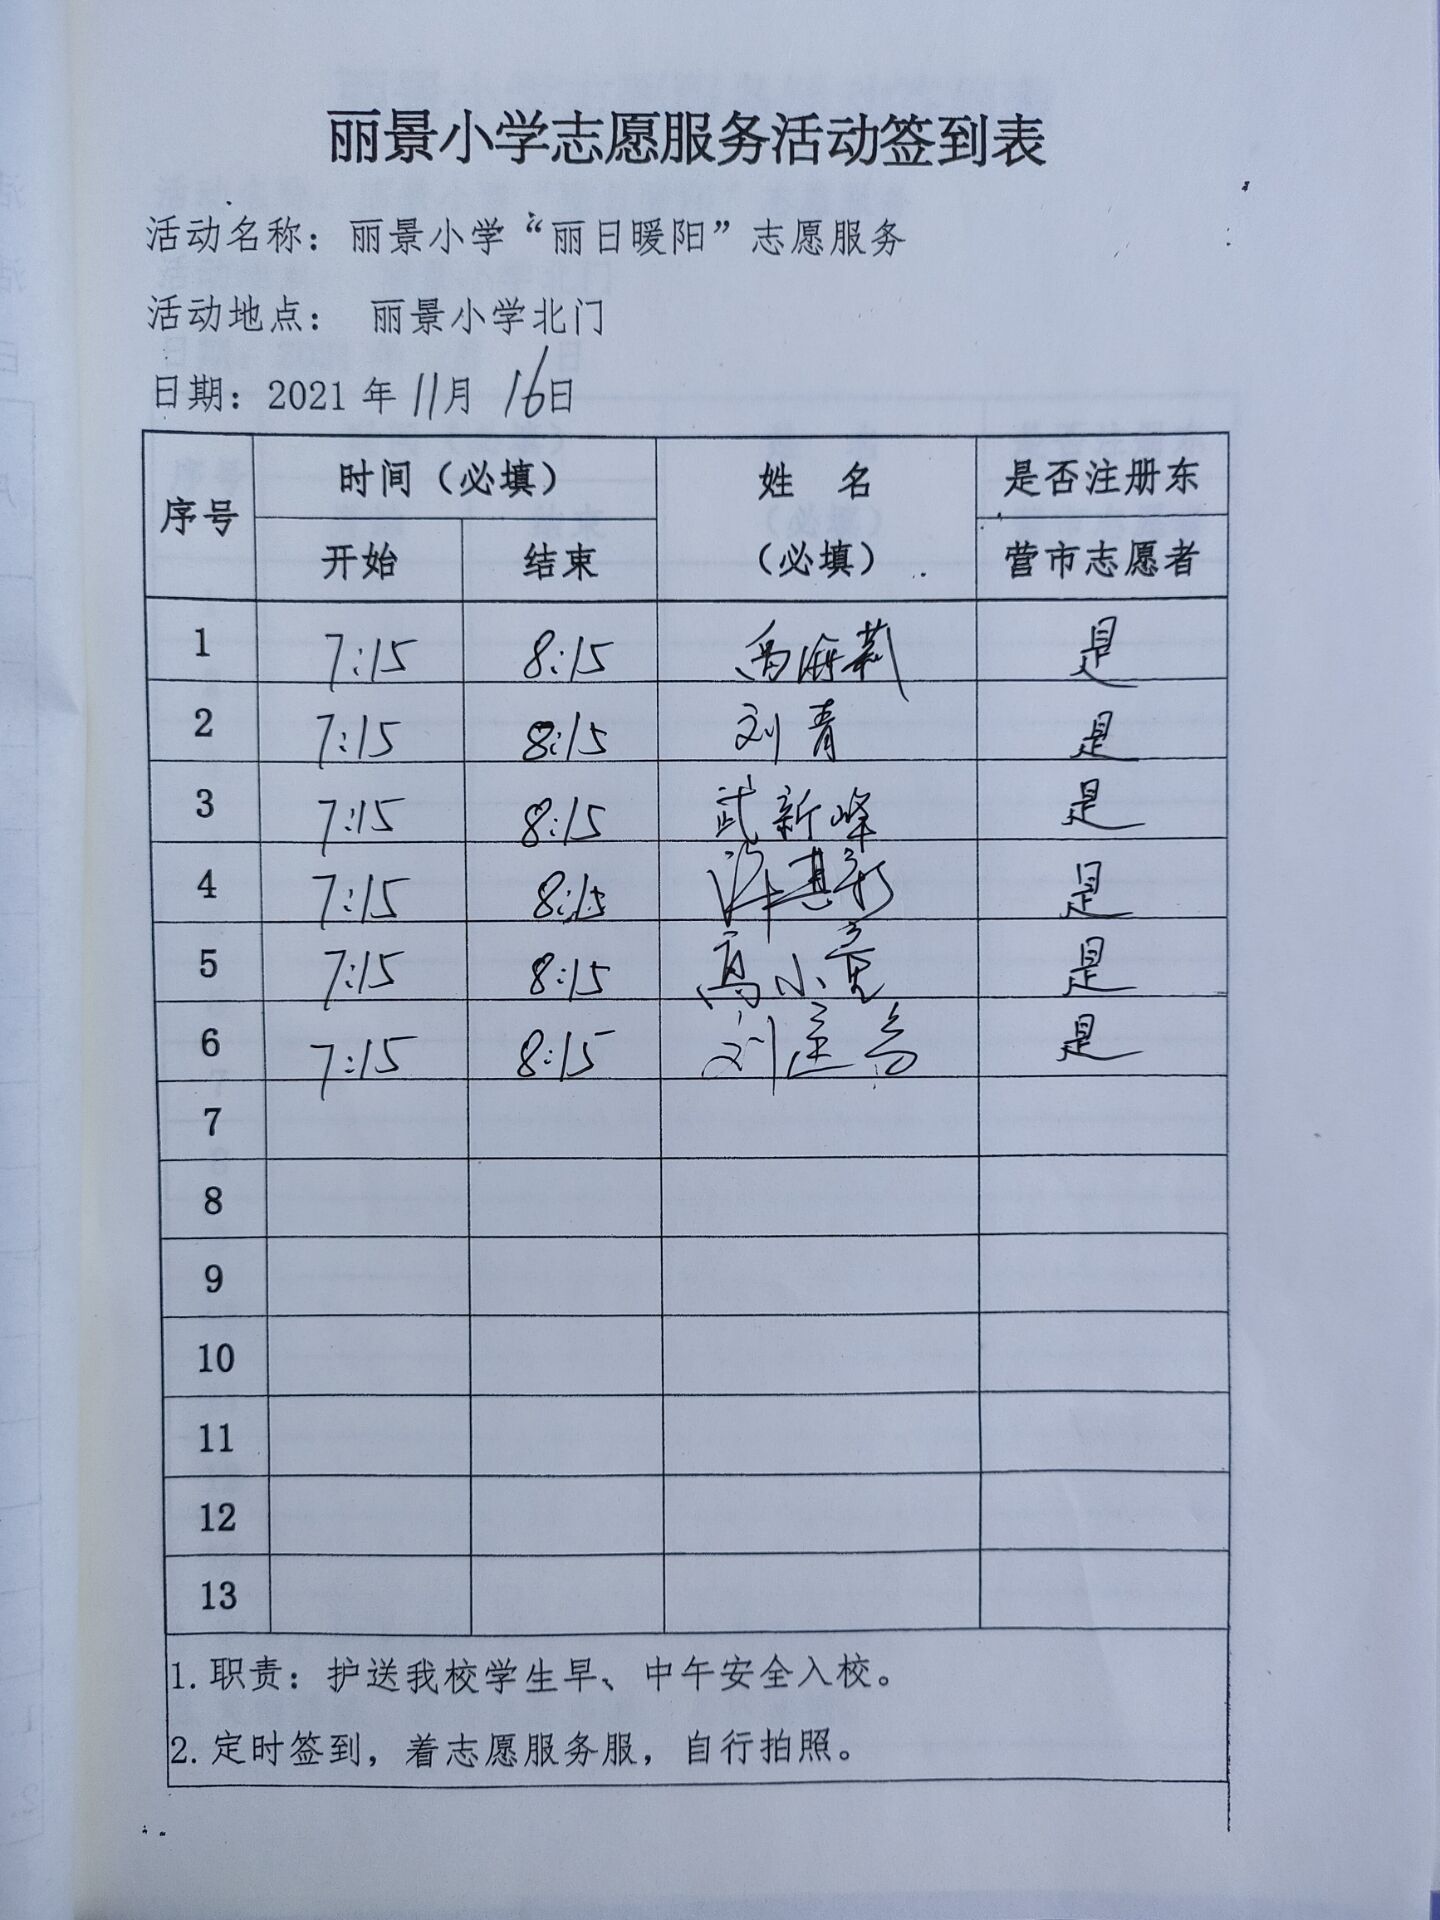 丽景小学志愿服务活动签到表
活动名称：丽景小学“丽日暖阳”志愿服务
活动地点： 丽景小学北门
日期：2021年11月16日
序号 时间（必填） 姓 名 是否注册东
开始 结束 （必填） 营市志愿者
1 7:15 8:15 是
2 7:15 8:15 刘青 是
3 7:15 8:15 武新峰 是
4 7:15 8:15 是
5 7:15 8:15 高小亮 是
6 7:15 8:15 刘 是
7
8
9
10
11
12
13
1.职责：护送我校学生早、中午安全入校。
2.定时签到，着志愿服务服，自行拍照。